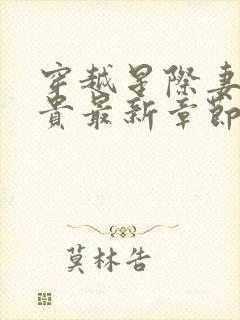 穿越星際妻
貴最新章節
莫林告